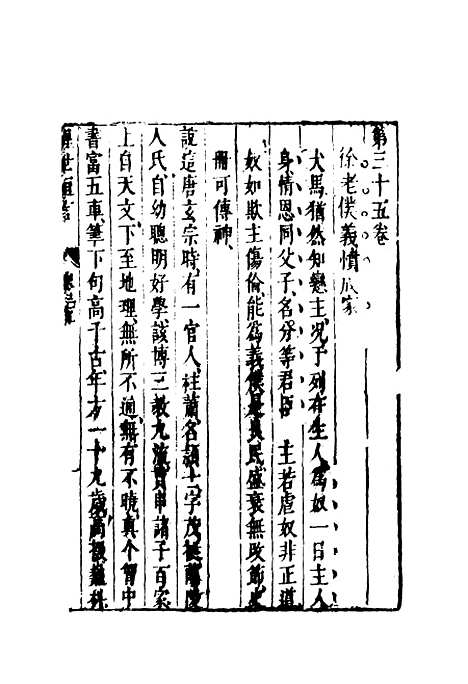 第三十五卷
徐老僕義憤成家
犬馬猶然知戀主况于列在生人爲奴一日主人
身情恩同父子名分等君臣　主若虐奴非正道
奴如欺主傷倫能爲義僕是良民盛衰無改節史
冊可傳神
說這唐玄宗時有一官人姓蕭名穎士字茂挺蘭陵
人氏自幼聰明好學該博三教九流貫串諸子百家
上自天文下至地理無所不通無有不曉真个胷中
書富五車筆下句高千古年方一十九歲高掇巍科